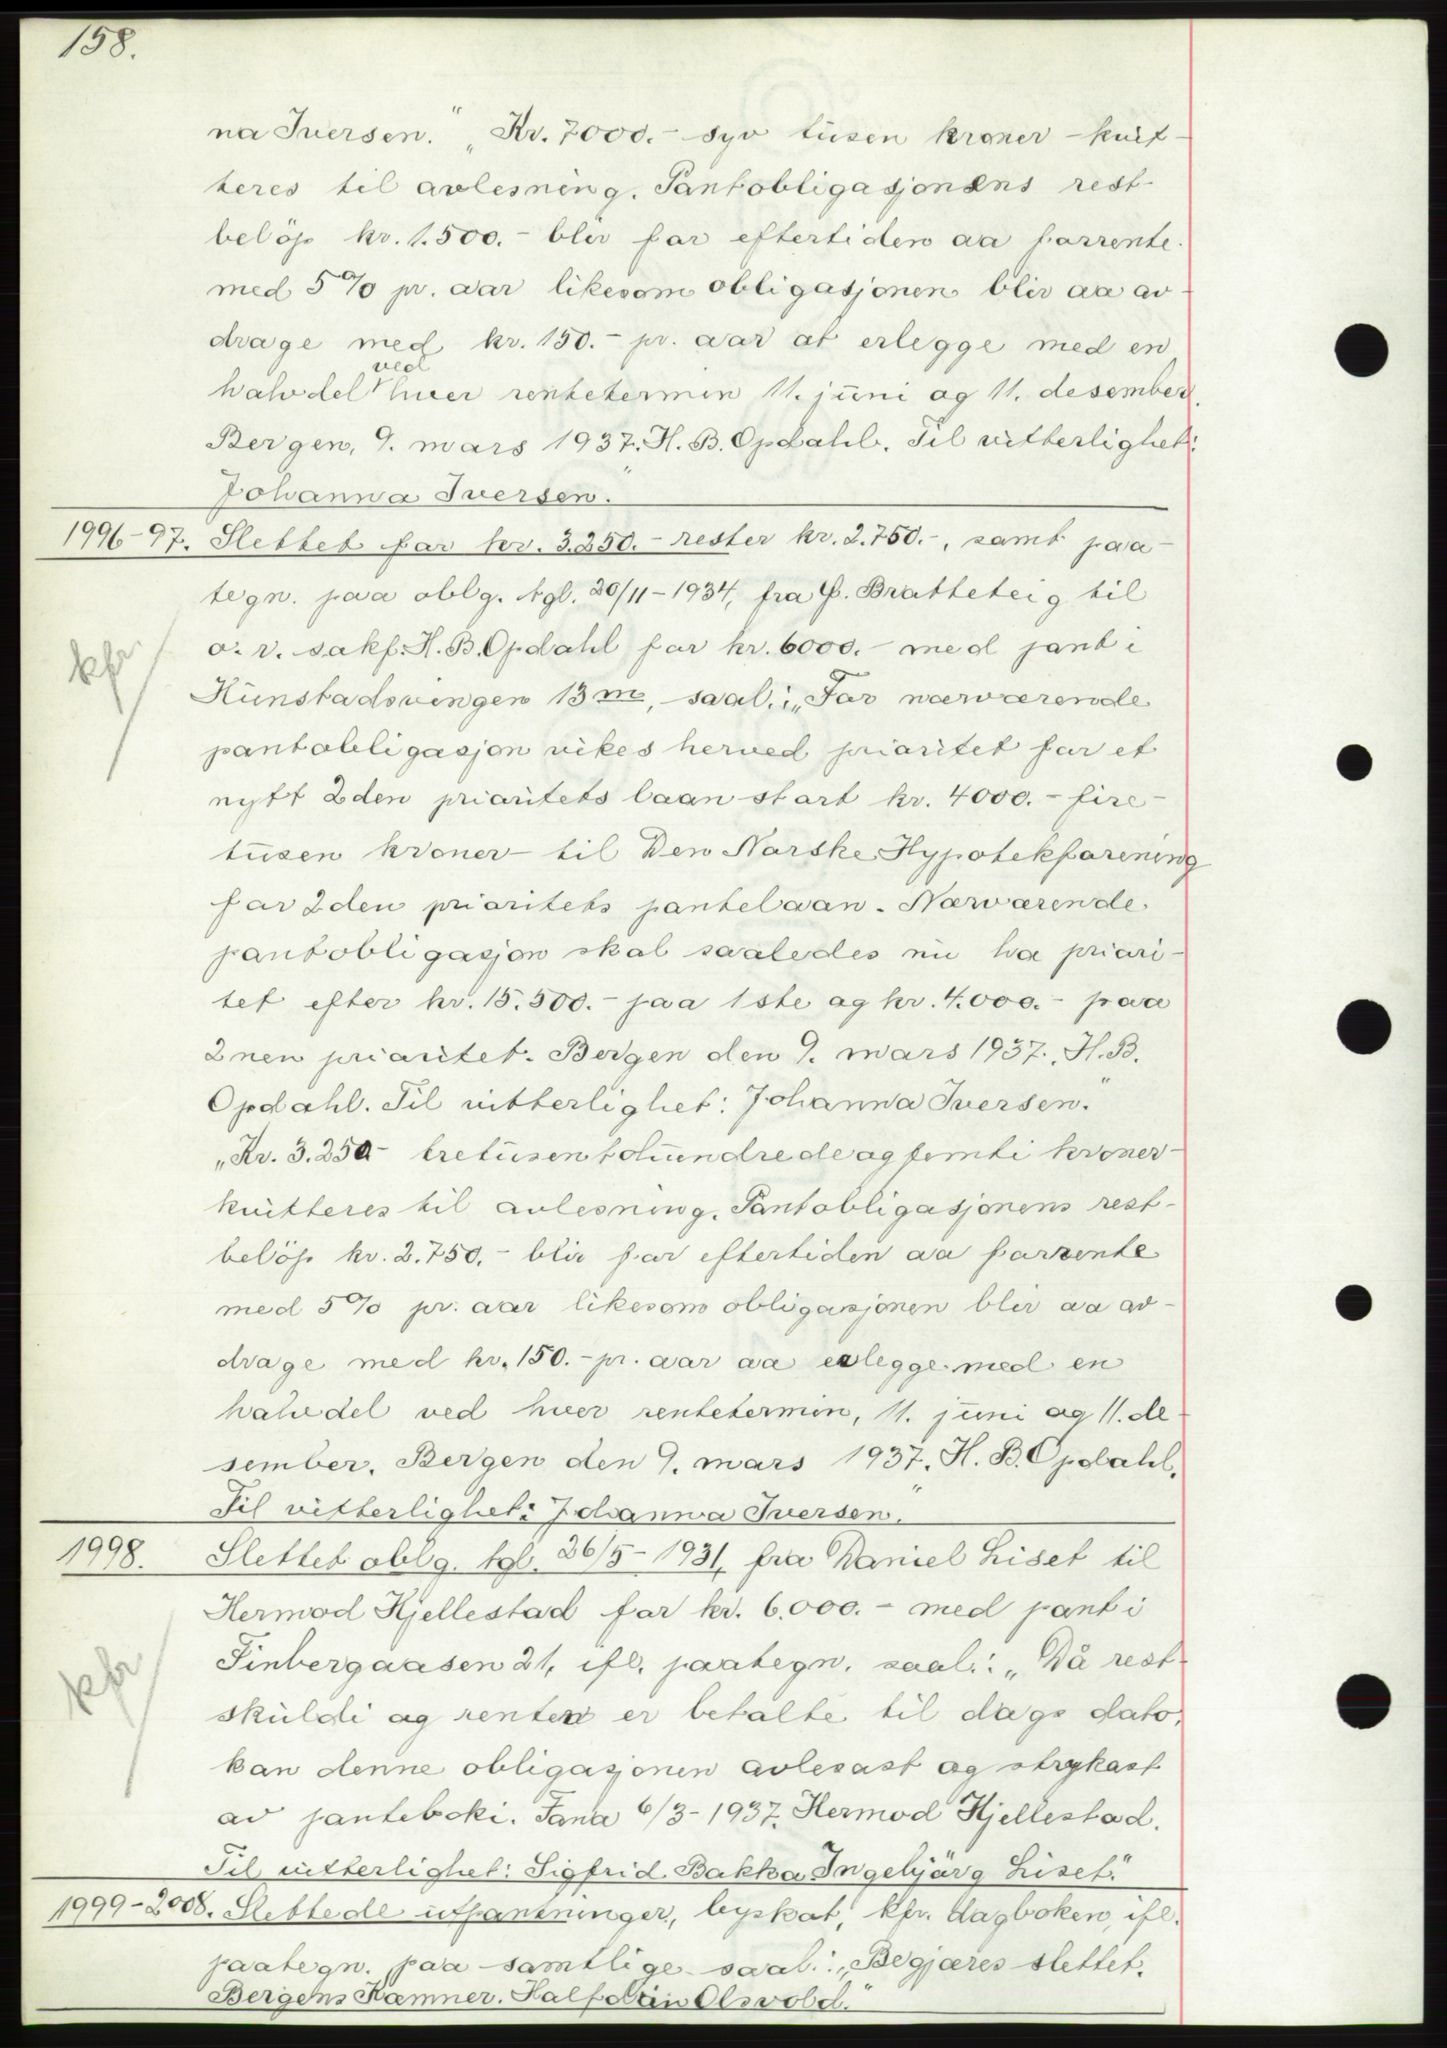 158.
na Iversen." „Kr. 7000.- syv tusen kroner - kvit-
teres til avlesning. Pantobligasjonens rest-
beløp kr. 1.500.- blir for eftertiden aa forrente
med 5% pr. aar likesom obligasjonen blir aa av-
drage med kr. 150.- pr. aar at erlegge med en
halvdel ved hver rentetermin 11. juni og 11. desember.
Bergen, 9. mars 1937. H. B. Opdahl. Til vitterlighet:
Johanna Iversen."
1996-97. Slettet for kr. 3.250.- rester kr. 2.750.-, samt paa-
tegn. paa oblg. tgl. 20/11-1934, fra G. Bratteteig til
o. r. sakf. H. B. Opdahl for kr. 6000.- med pant i
kfr
Künstadsvingen 13 m, saal.: „For nærværende
pantobligasjon vikes herved prioritet for et
nytt 2den prioritets laan stort kr. 4000.- fire-
tusen kroner - til Den Norske Hypotekforening
for 2den prioritets pantelaan. Nærværende
pantobligasjon skal saaledes nu ha priori-
tet efter kr. 15.500.- paa 1ste og kr. 4.000.- paa
2nen prioritet. Bergen den 9. mars 1937. H. B.
Opdahl. Til vitterlighet: Johanna Iversen."
„Kr. 3.250.- tretusentohundredeogfemti kroner-
kvitteres til avlesning. Pantobligasjonens rest-
beløp kr. 2.750.- blir for eftertiden aa forrente
med 5% pr. aar likesom obligasjonen blir aa av-
drage med kr. 150.- pr. aar aa erlegge med en
halvdel ved hver rentetermin, 11. juni og 11. de-
sember. Bergen den 9. mars 1937. H. B. Opdahl.
Til vitterlighet: Johanna Iversen."
1998. Slettet oblg. tgl. 26/5-1931, fra Daniel Liset til
Hermod Hjellestad for kr. 6.000.- med pant i
kfr
Finbergaasen 21, ifl. paategn. saal.: „Då rest-
skuldi og renter er betalte til dags dato,
kan denne obligasjonen avlesast og strykast
av panteboki. Fana 6/3-1937. Hermod Hjellestad.
Til vitterlighet: Sigfrid Bakka Ingebjørg Liset."
1999-2008. Slettede utpantninger, byskat, kfr. dagboken, ifl.
paategn. paa samtlige saal.: „Begjæres slettet.
Bergens Kæmner. Halfdan Olsvold."